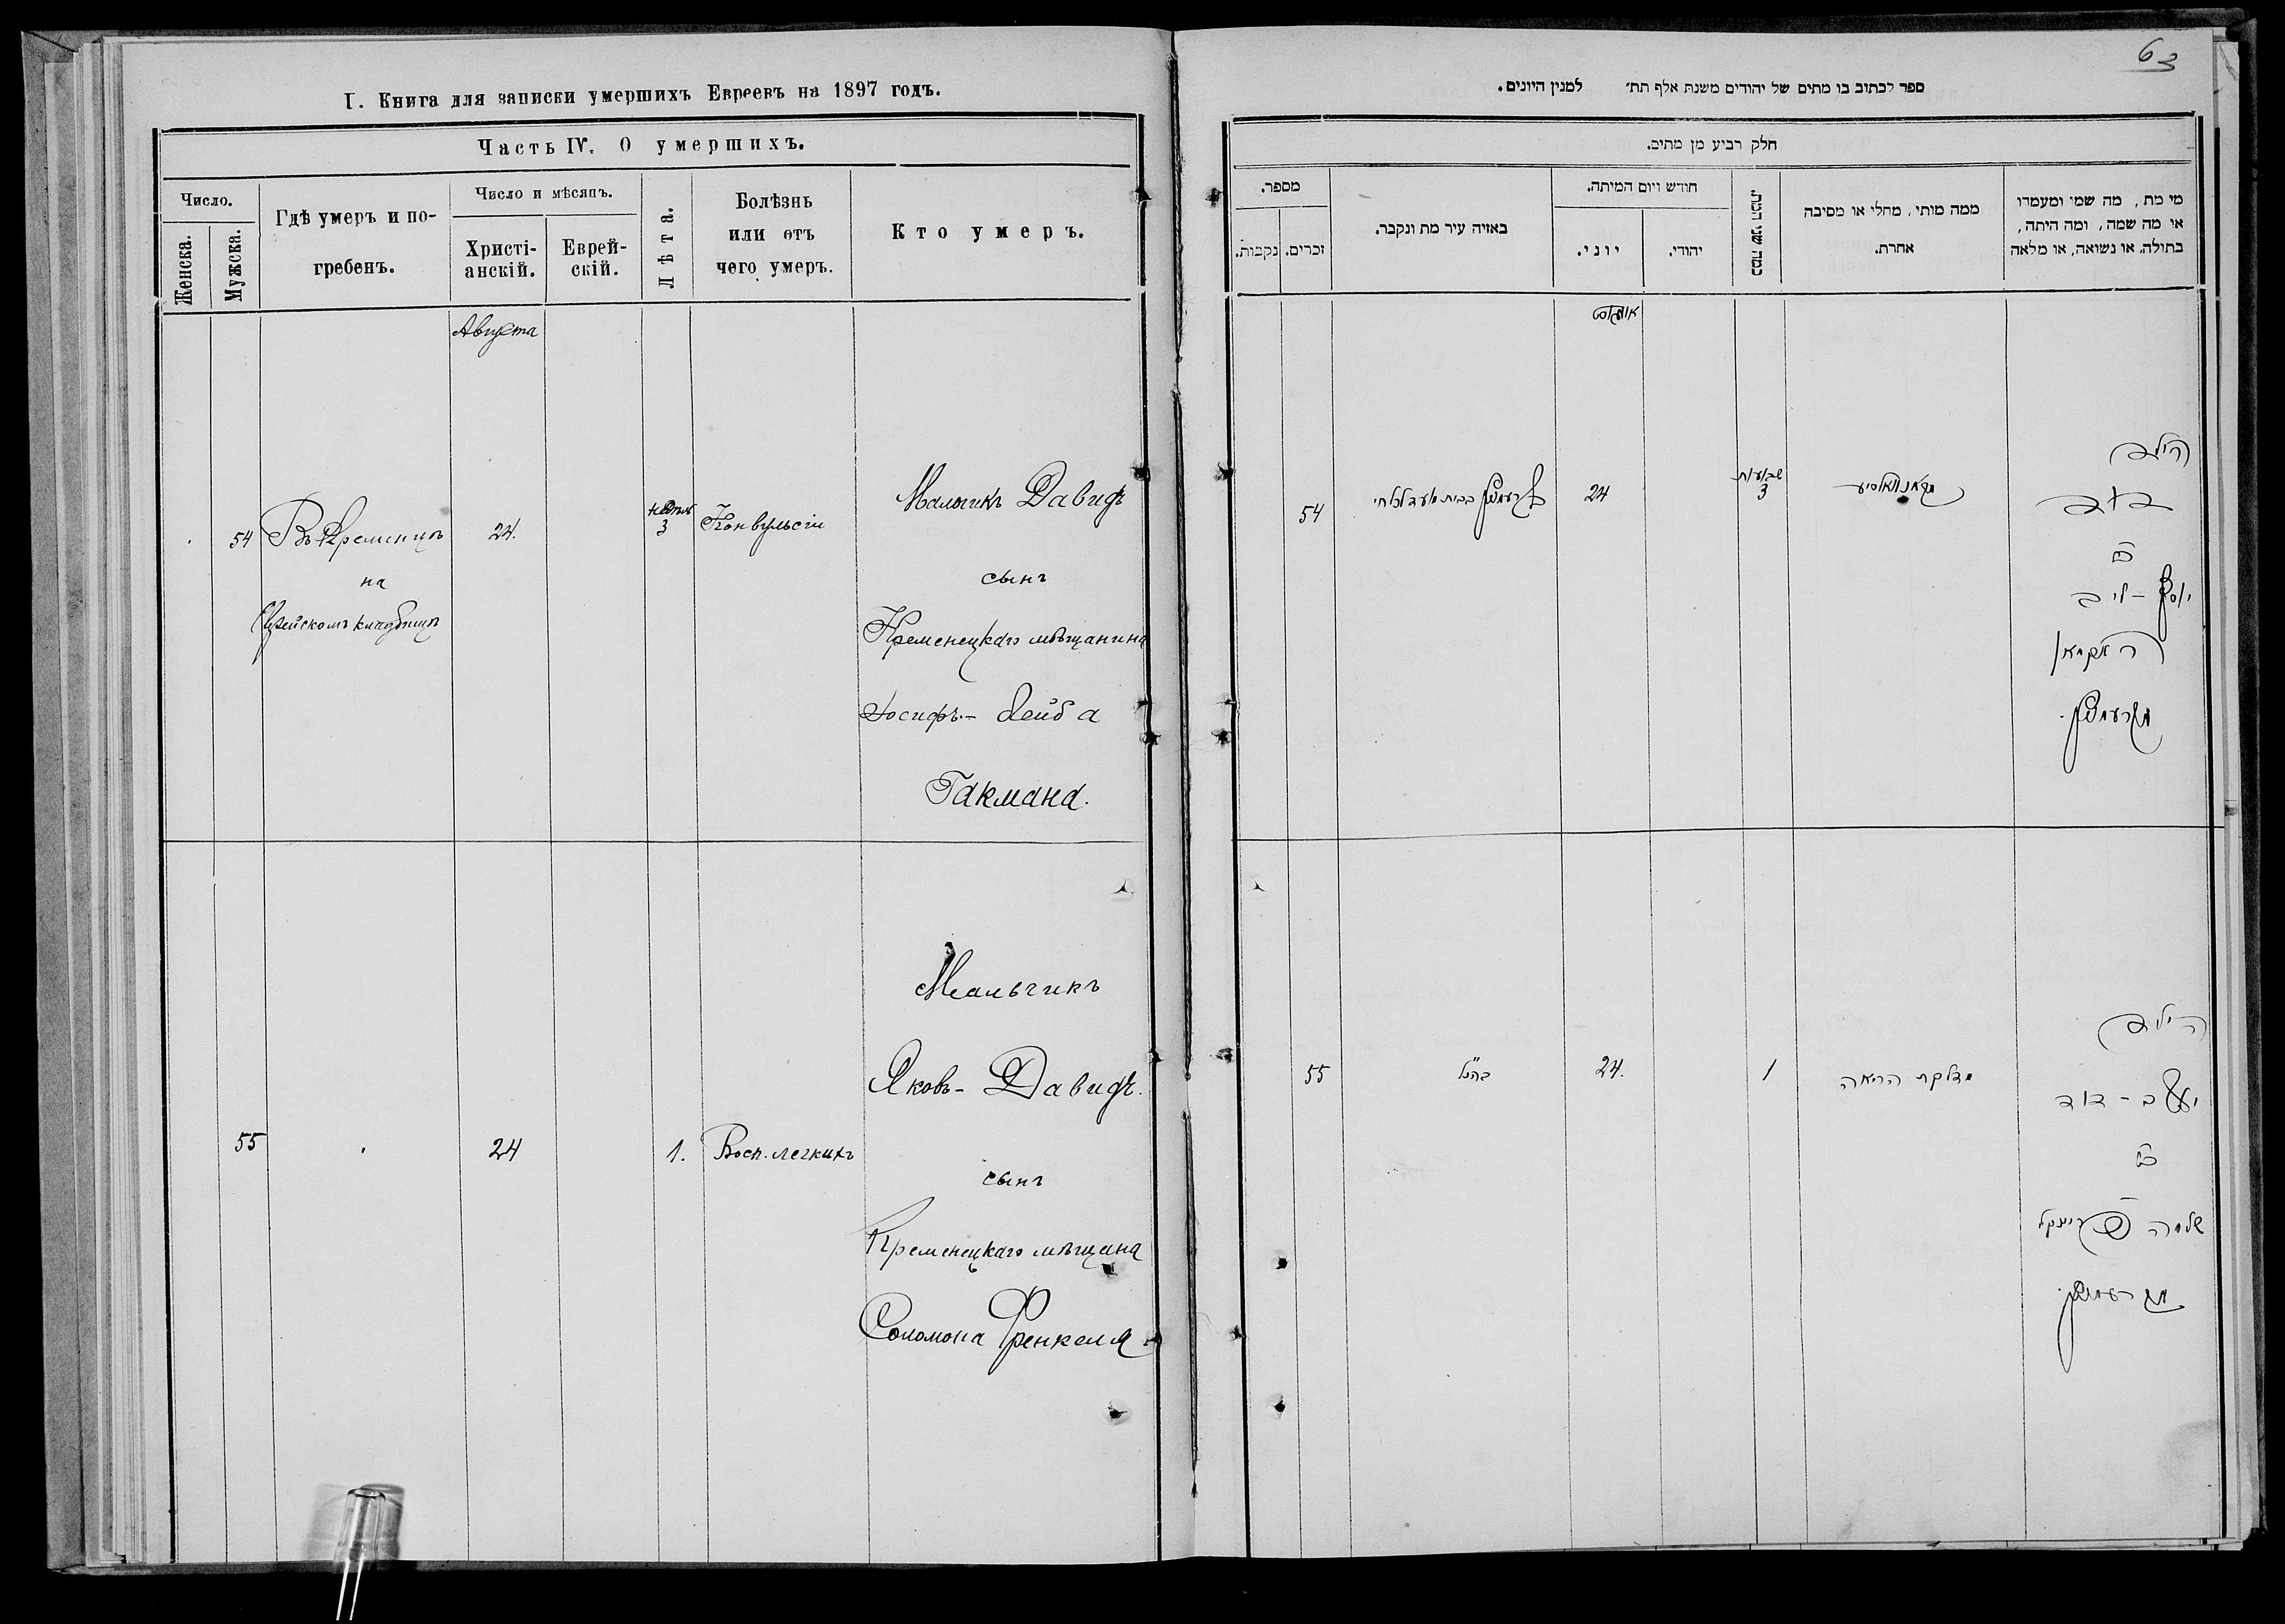 I. Книга для записки умершихъ Евреевъ на 1897 годъ.
Часть IV. О умершихъ.
Число.
Женска.
Мужска.
Гдѣ умеръ и по-
гребенъ.
Число и мѣсяцъ.
Христі-
анскій.
Еврей-
скій.
Лѣта.
Болѣзнь
или отъ
чего умеръ.
Кто умеръ.
Августа
54
Въ Кременцѣ
на
24.
3
Конвульсіи
Мальчикъ Давидъ
сынъ
Кременецкаго мѣщанина
Іосифъ-Лейба
Гакмана.
55
24
1.
Восп. легкихъ
Мальчикъ
Яковъ-Давидъ.
сынъ
Кременецкаго мѣщана
Соломона Френкеля
63
ספר לכתוב בו מתים של יהודים משנת אלף תת׳ למנין היונים.
חלק רביע מן מתים.
מספר.
נקבות.
זכרים.
באיזה עיר מת ונקבר.
חודש ויום המיתה.
יוני.
יהודי.
כמה שני המת.
ממה מותי, מחלי או מסיבה
אחרת.
מי מת, מה שמו ומעמדו
או מה שמה, ומה היתה,
בתולה, או נשואה, או מלאה
אויגוסט
54
24
שבועות
3
קאנוואלסיע
הילד
דוד
בן
יוסף-ליב
האקמאן
מקרעמניץ.
55
כהנ"ל
24.
1
מדלקת הריאה
הילד
יעקב-דוד
בן
שלמה פרענקל
מקרעמניץ.